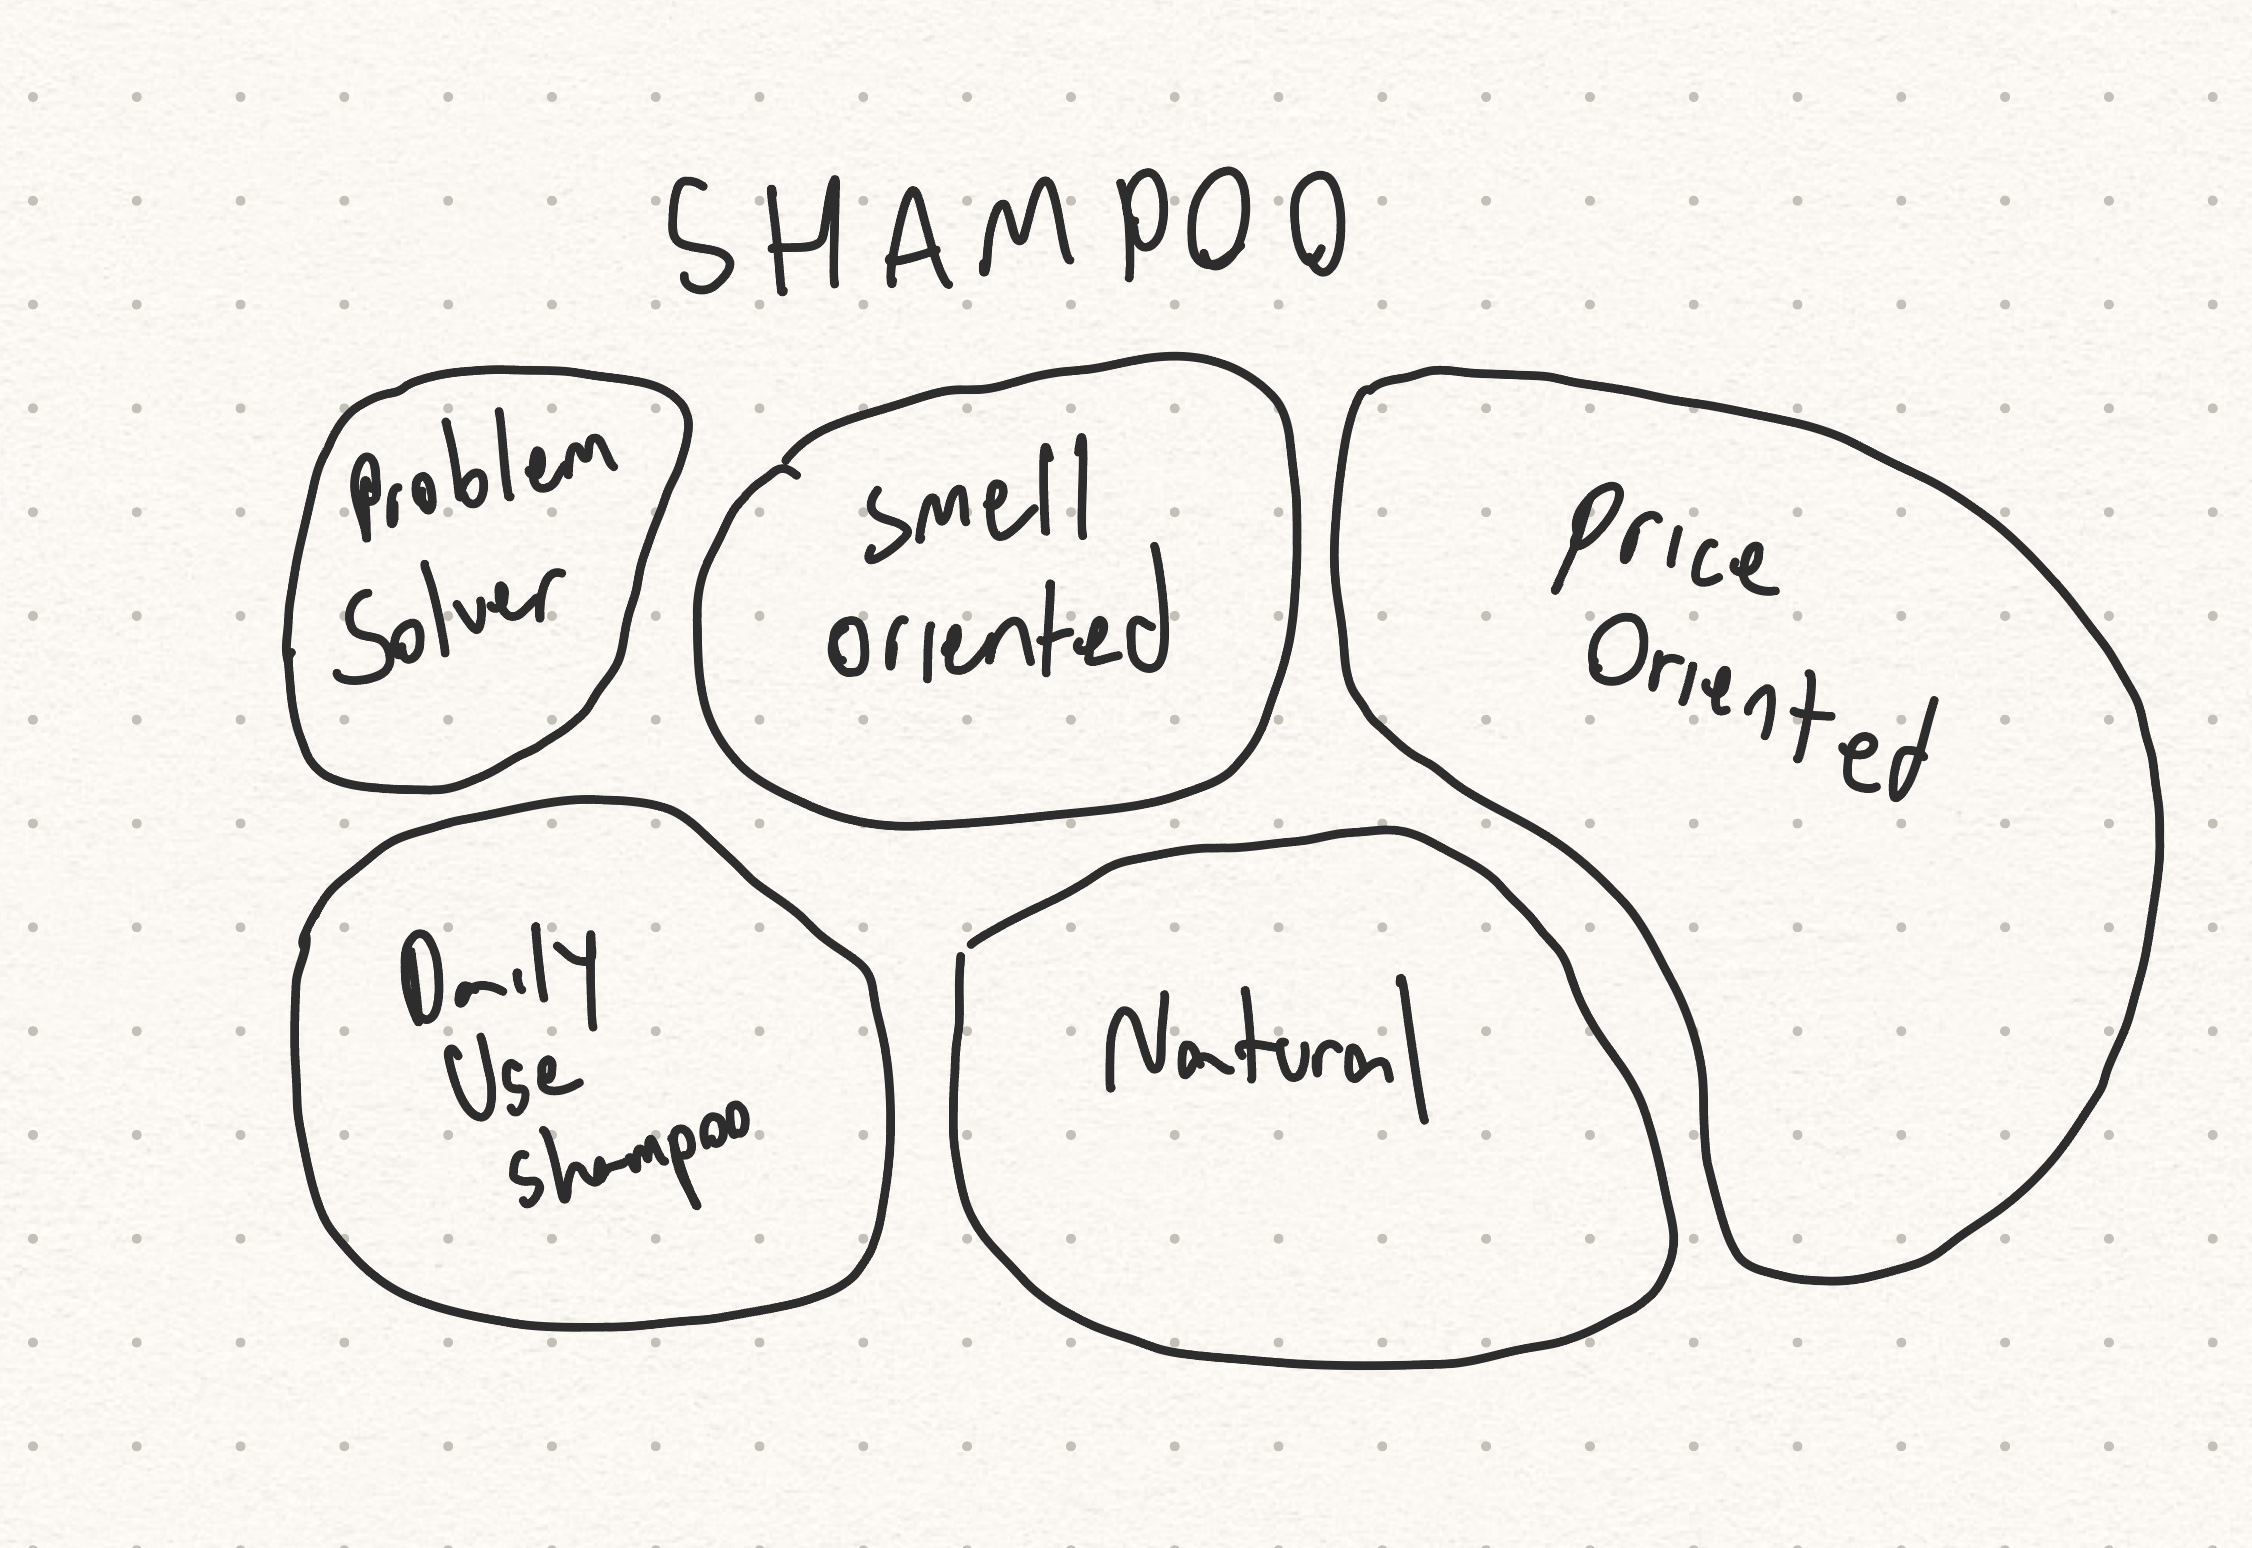 SHAMPOO
Problem
Solver
smell
oriented
Price
Oriented
Daily
Use
shampoo
Natural